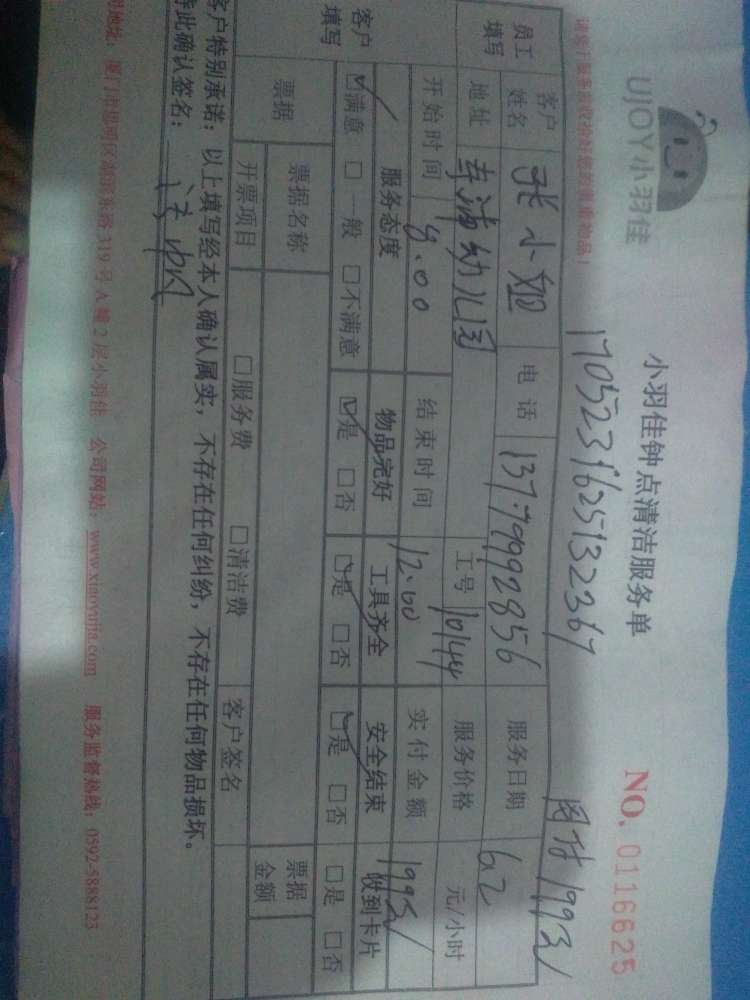 UJOY小羽佳
小羽佳钟点清洁服务单
NO. 0116625
17052316251322367
网付 199元
员工填写 客户姓名 张小姐 电话 13799992856 服务日期 6.2
地址 幼儿园 工号 10144 服务价格 元/小时
开始时间 9.00 结束时间 12.00 实付金额 199元
客户填写 服务态度 物品完好 工具齐全 安全结束 收到卡片
☑满意 □一般 □不满意 ☑是 □否 ☑是 □否 ☑是 □否 □是 □否
票据 票据名称 客户签名 票据金额
开票项目 □服务费 □清洁费
客户特别承诺：以上填写经本人确认属实，不存在任何纠纷，不存在任何物品损坏。
特此确认签名：
地址：厦门市思明区湖滨东路319号A幢2层小羽佳 公司网站：www.xiaoyujia.com 服务监督热线：0592-5888123